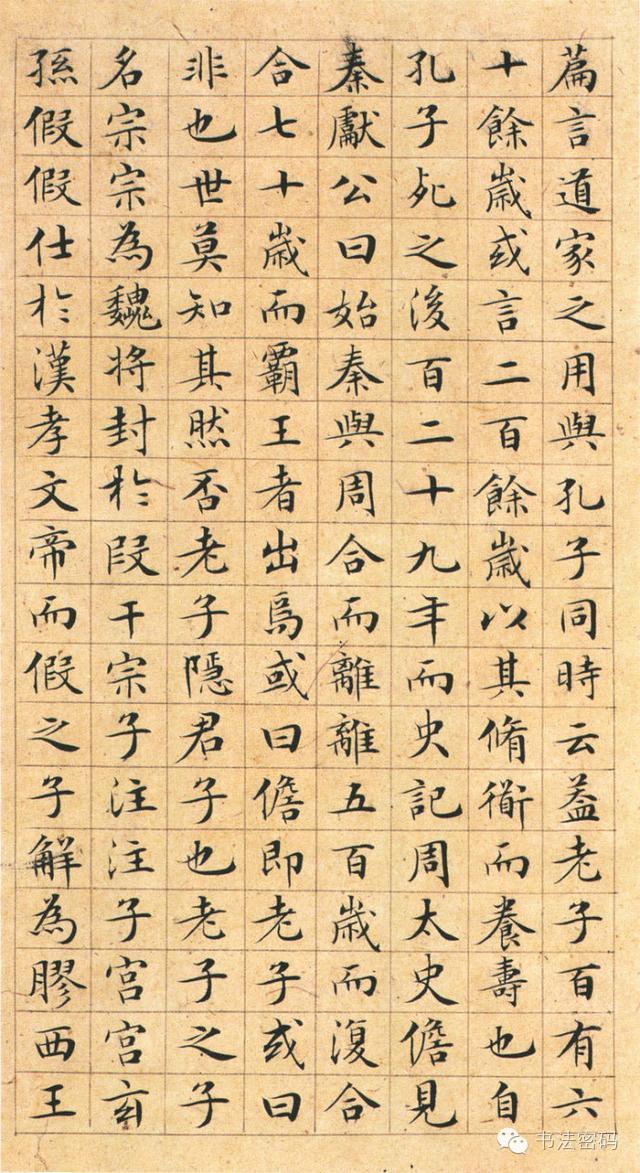 篇言道家之用與孔子同時云葢老子百有六
十餘歲或言二百餘歲以其脩衜而養壽也自
孔子死之後百二十九年而史記周太史儋見
秦獻公曰始秦與周合而離離五百歲而復合
合七十歲而霸王者出焉或曰儋即老子或曰
非也世莫知其然否老子隱君子也老子之子
名宗宗為魏將封於段干宗子注注子宮宮玄
孫假假仕於漢孝文帝而假之子解為膠西王
书法密码